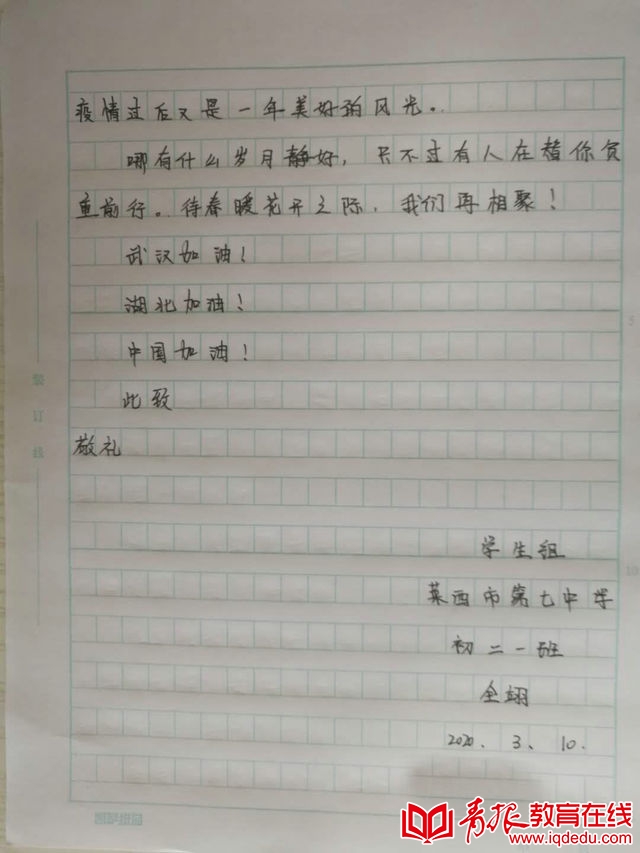 疫情过后又是一年美好的风光。
哪有什么岁月静好，只不过有人在替你负
重前行。待春暖花开之际，我们再相聚！
武汉加油！
湖北加油！
中国加油！
此致
敬礼
学生组
莱西市第七中学
初二一班
全翊
2020. 3、10.
装订线
5
10
青报教育在线
www.iqdedu.com